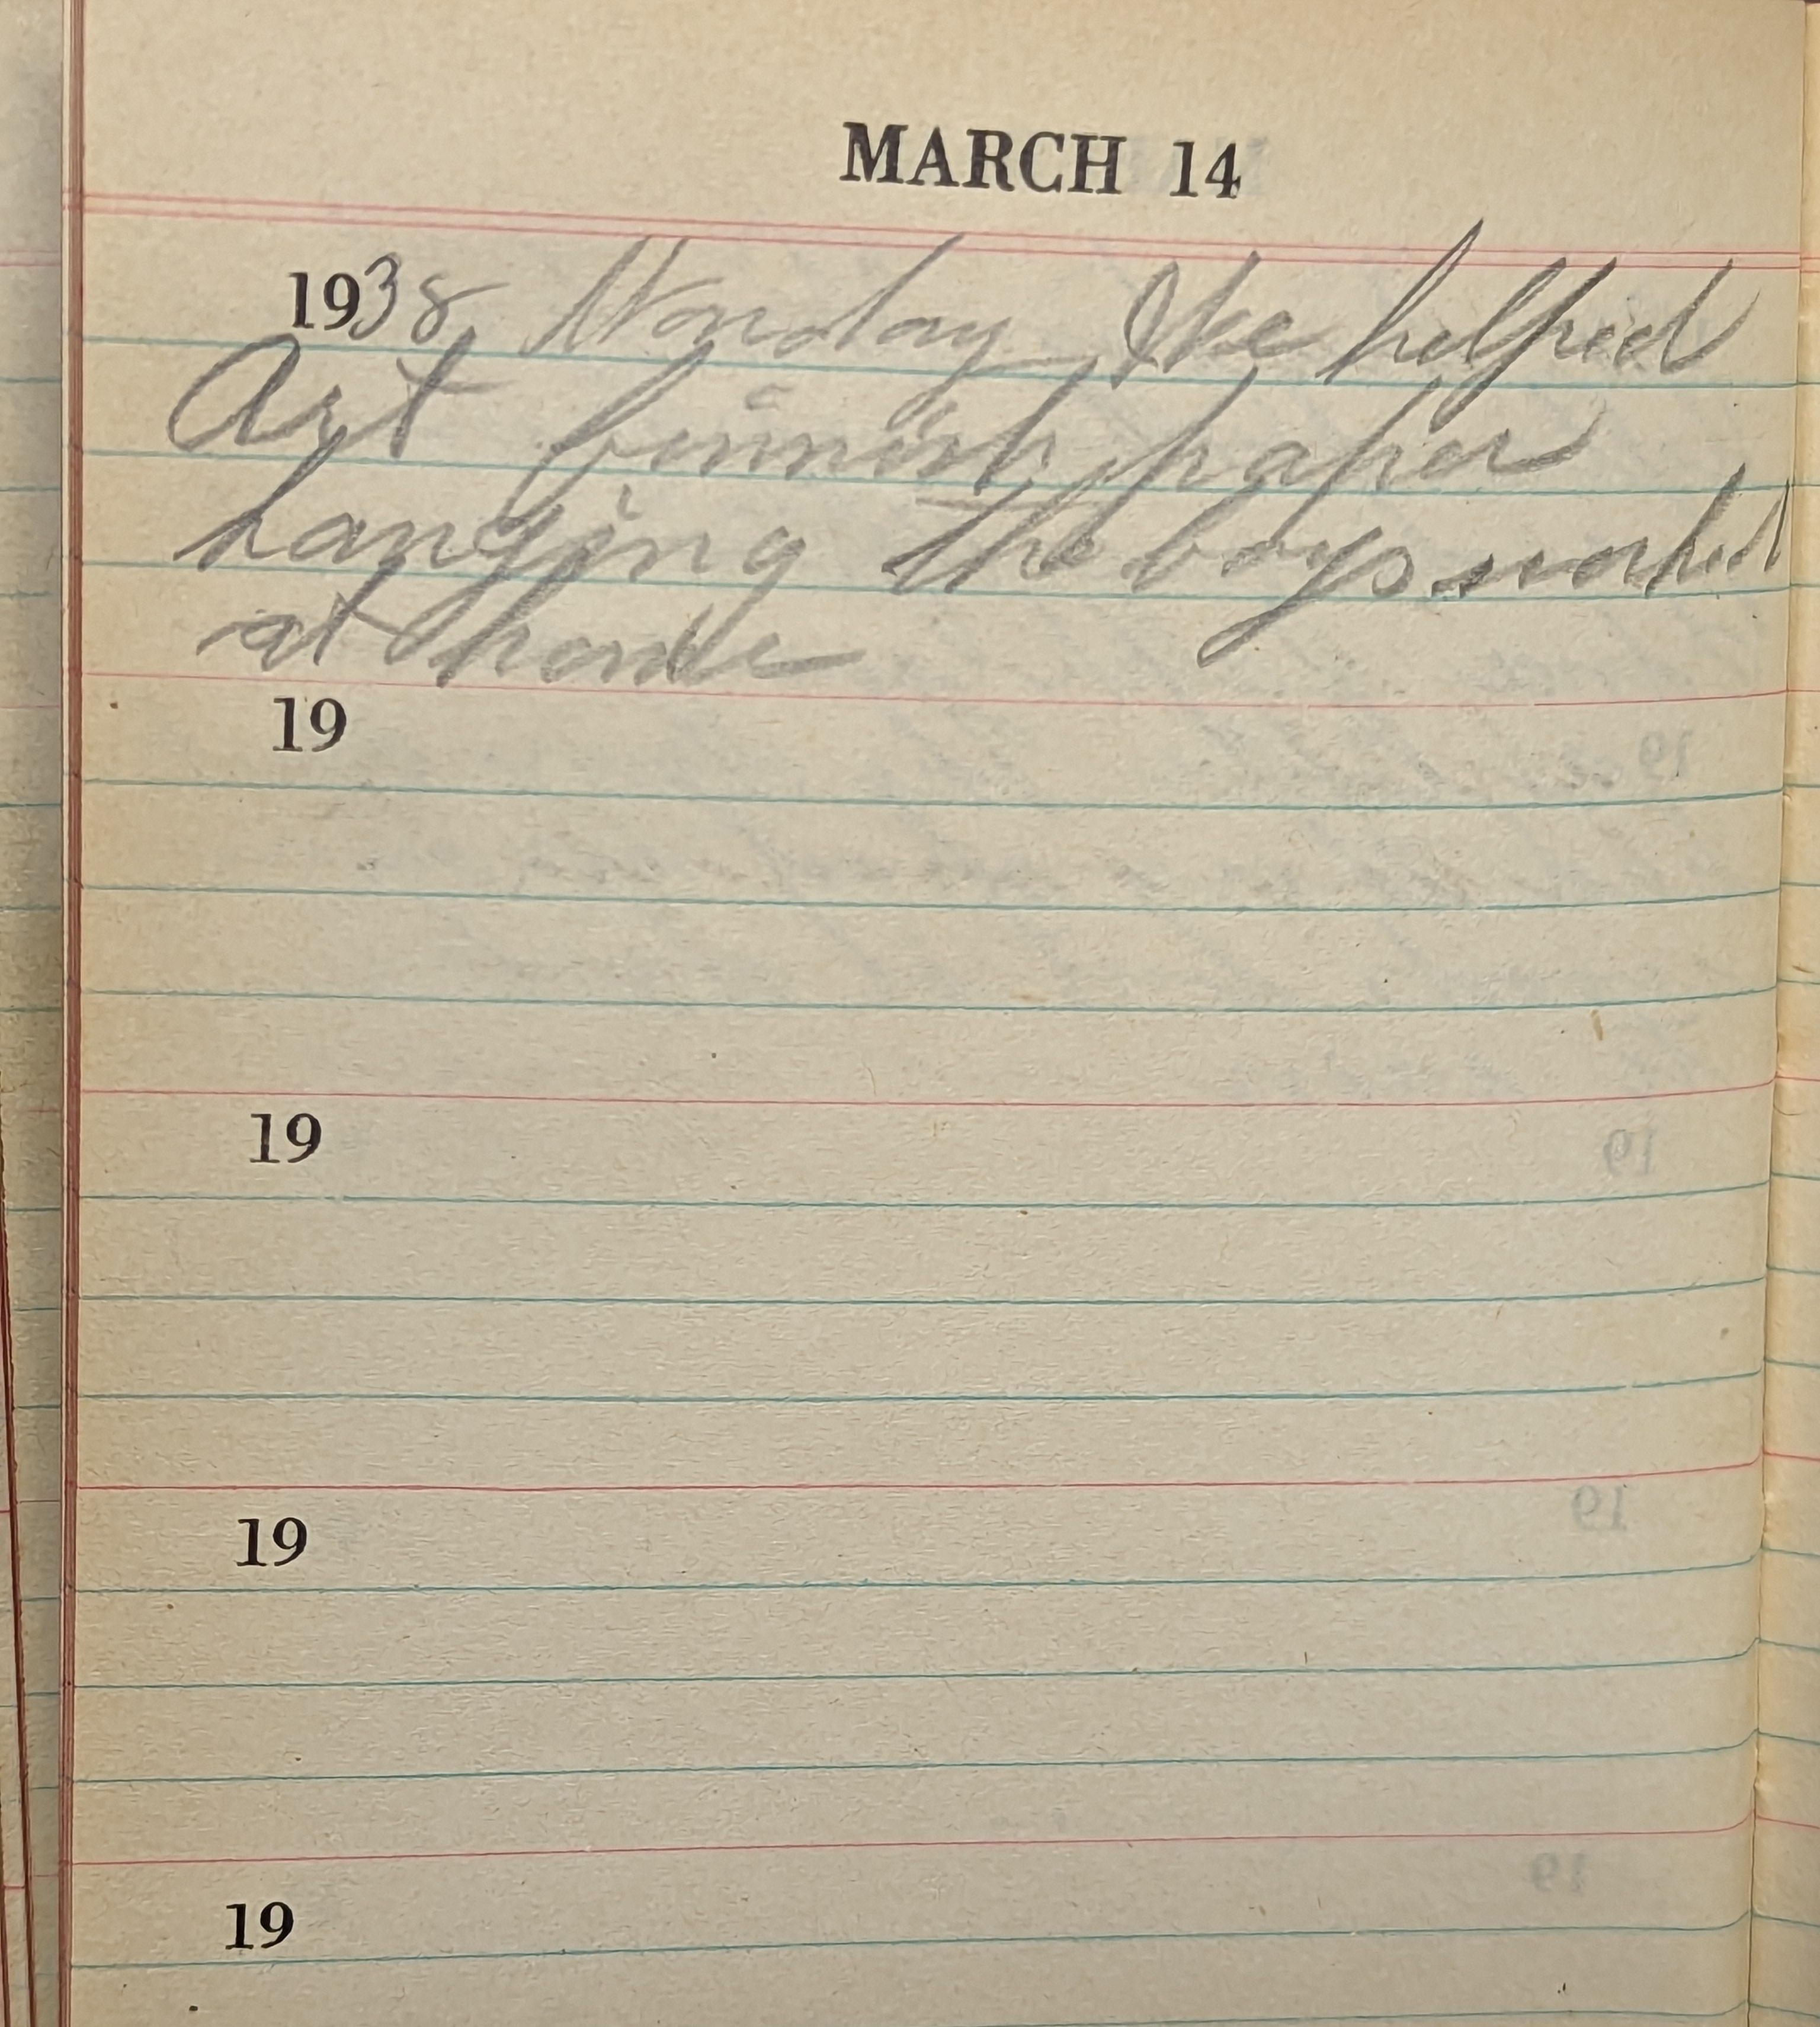 MARCH 14
1938 Monday Ike helped
Art finnish paper
hanging the boys worked
at home
19
19
19
19